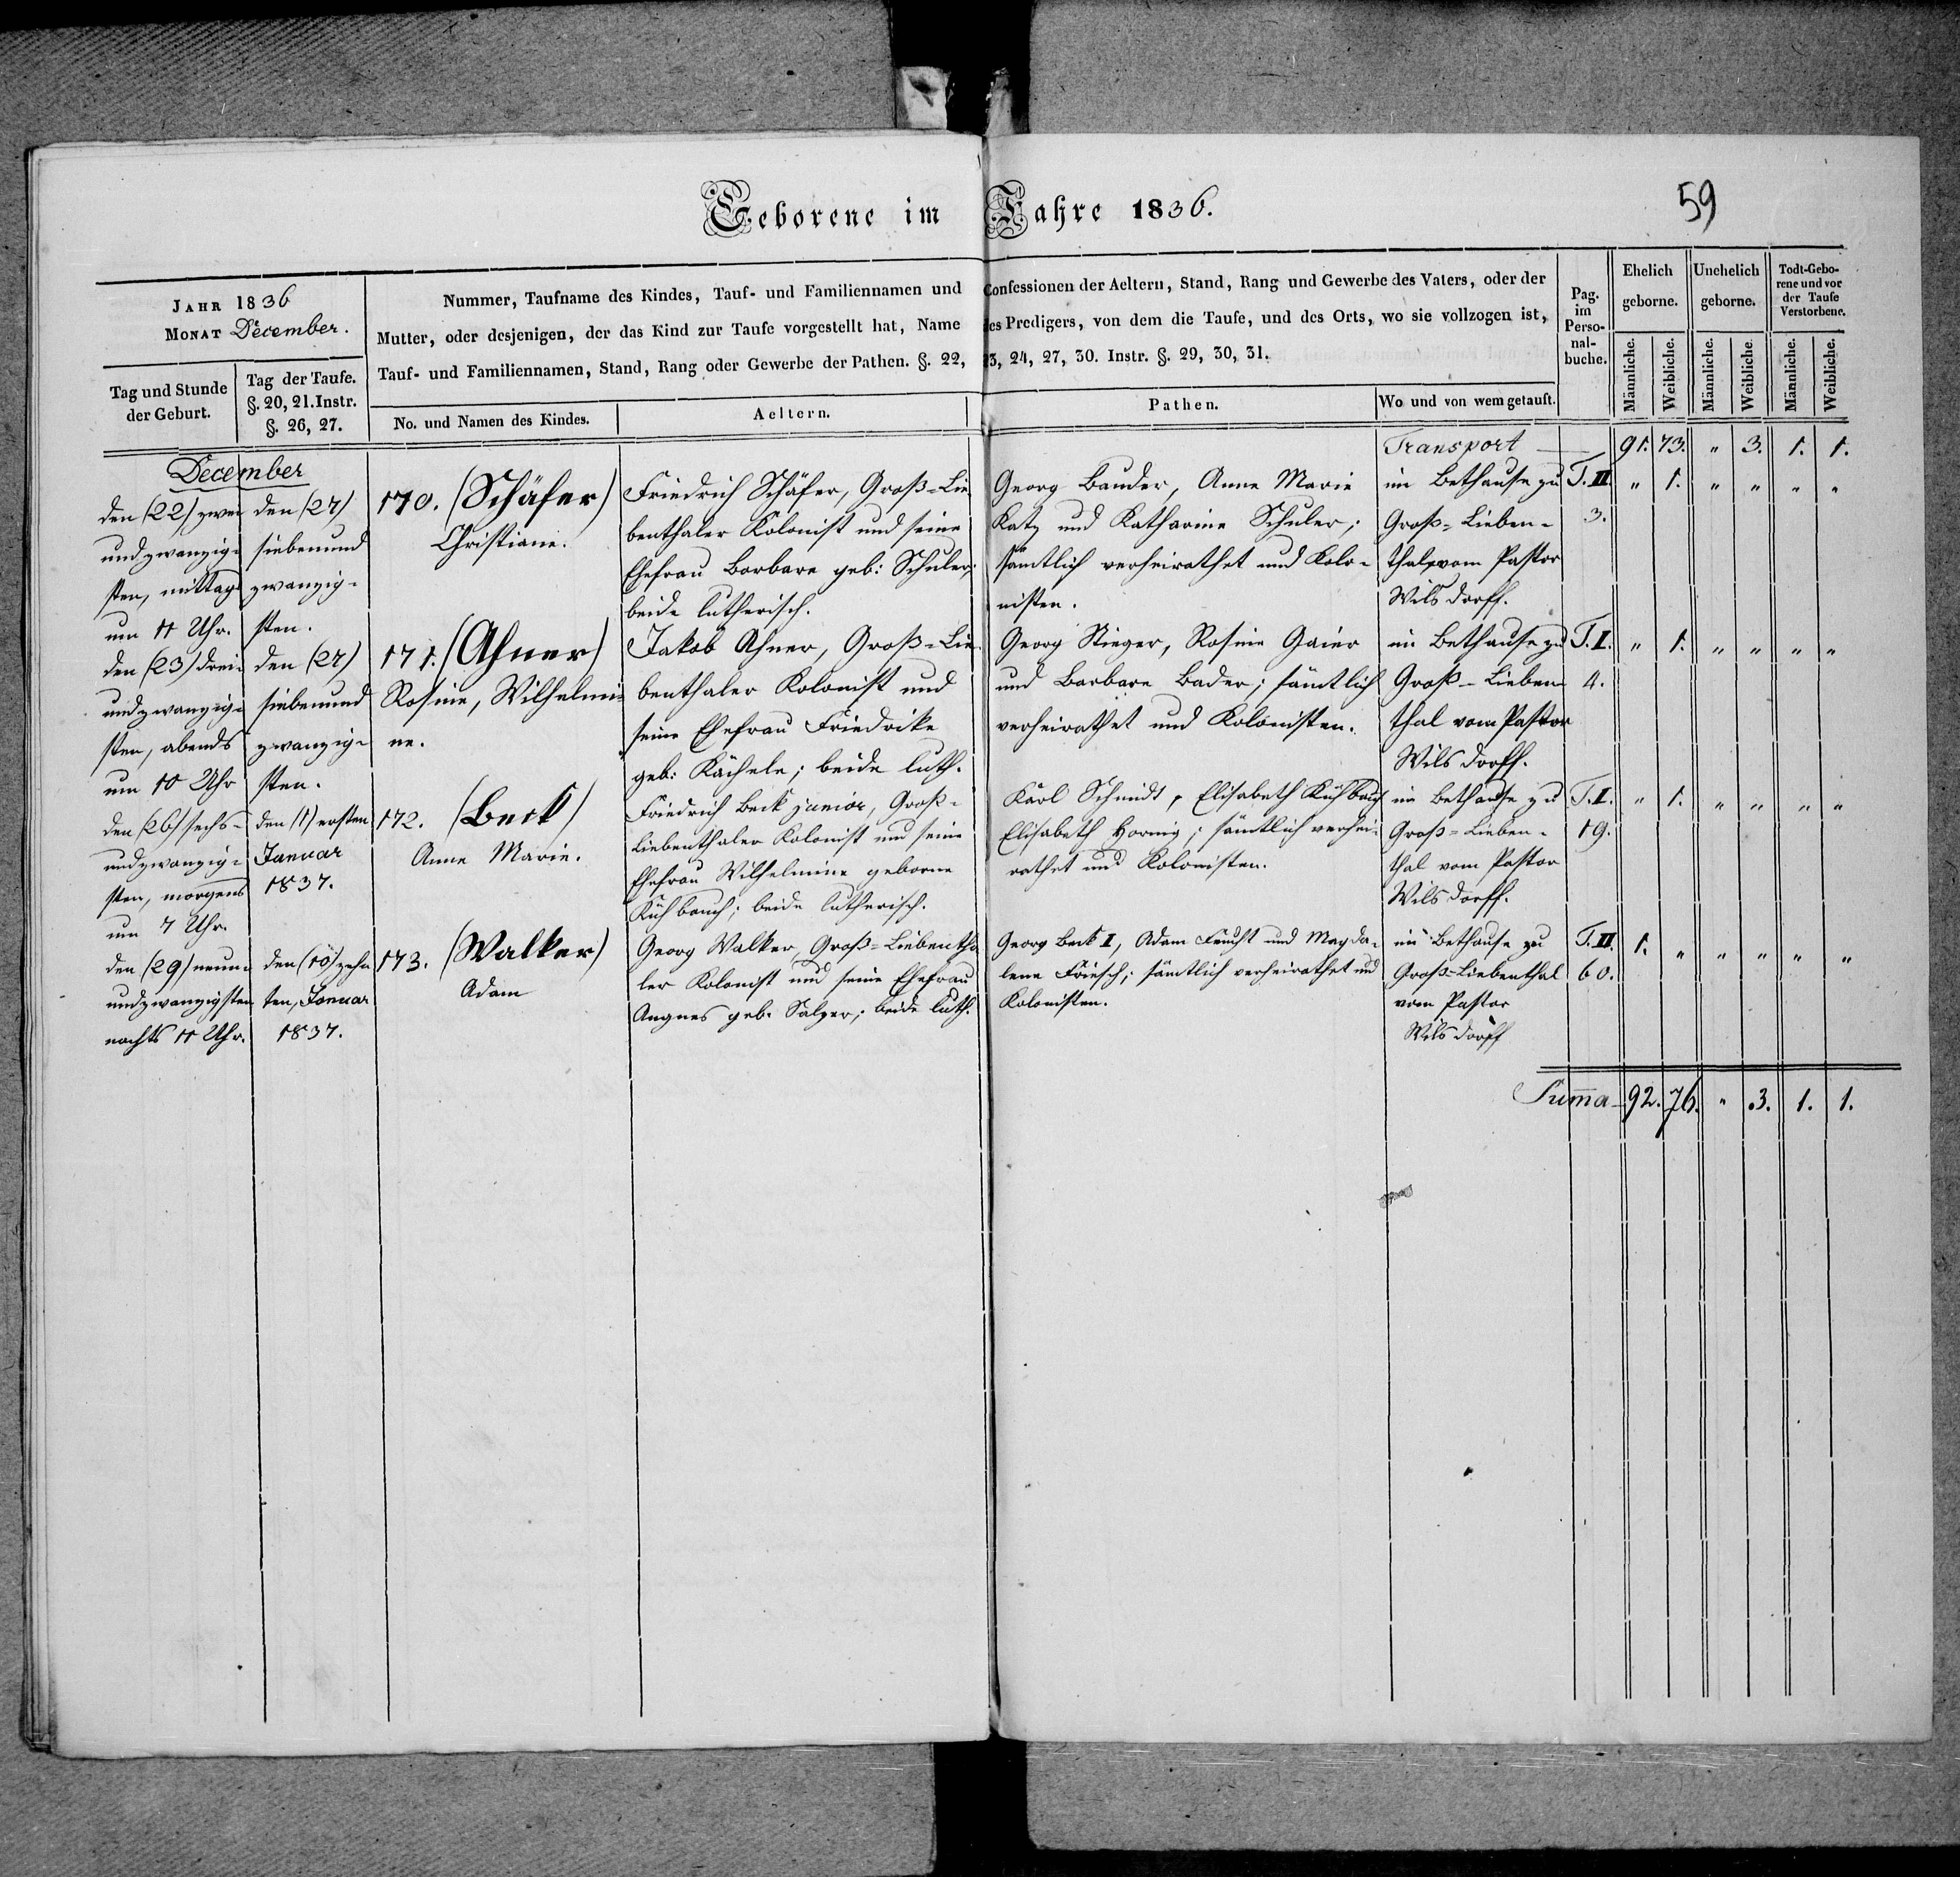 Geborene im Jahre 1836.
59
JAHR 1836
MONAT December.
Nummer, Taufname des Kindes, Tauf- und Familiennamen und Confessionen der Aeltern, Stand, Rang und Gewerbe des Vaters, oder der
Mutter, oder desjenigen, der das Kind zur Taufe vorgestellt hat, Name des Predigers, von dem die Taufe, und des Orts, wo sie vollzogen ist,
Tauf- und Familiennamen, Stand, Rang oder Gewerbe der Pathen. §. 22, 23, 24, 27, 30. Instr. §. 29, 30, 31.
Tag und Stunde
der Geburt.
Tag der Taufe.
§. 20, 21. Instr.
§. 26, 27.
No. und Namen des Kindes.
Aeltern.
Pathen.
Wo und von wem getauft.
Pag.
im
Perso-
nal-
buche.
Ehelich
geborne.
Unehelich
geborne.
Todt-Gebo-
rene und vor
der Taufe
Verstorbene.
Männliche.
Weibliche.
Männliche.
Weibliche.
Männliche.
Weibliche.
Transport — 91. 73. " 3. 1. 1.
December
den (22) zwei
undzwanzig-
sten, mittag
um 11 Uhr.
den (27)
siebenund
zwanzig-
sten.
170. (Schäfer)
Christiane.
Friedrich Schäfer, Groß-Lie
benthaler Kolonist und seine
Ehefrau Barbara geb: Schuler;
beide lutherisch.
Georg Bauder, Anne Marie
Katz und Katharine Schuler;
sämtlich verheirathet und Kolo-
nisten.
im Bethause zu
Groß-Lieben-
thal, vom Pastor
Wilsdorff.
T. II.
3.
" 1. " " " "
den (23) drei-
undzwanzig-
sten, abends
um 10 Uhr
den (27)
siebenund
zwanzig-
sten.
171. (Ahner)
Rosine, Wilhelmi-
ne.
Jakob Ahner, Groß-Lie-
benthaler Kolonist und
seine Ehefrau Friedrike
geb: Kächele; beide luth.
Georg Stieger, Rosine Gaier
und Barbara Bader; sämtlich
verheirathet und Kolonisten.
im Bethause zu
Groß-Lieben-
thal vom Pastor
Wilsdorff.
T. I.
4.
" 1. " " " "
den (26) sechs-
undzwanzig-
sten, morgens
um 7 Uhr.
den (1) ersten
Januar
1837.
172. (Beck)
Anne Marie.
Friedrich Beck junior, Groß-
Liebenthaler Kolonist und seine
Ehefrau Wilhelmine geborne
Kühbauch; beide lutherisch.
Karl Schmidt, Elisabeth Kühbauch
Elisabeth Hornig; sämtlich verhei-
rathet und Kolonisten.
im Bethause zu
Groß-Lieben-
thal vom Pastor
Wilsdorff.
T. I.
19.
" 1. " " " "
den (29) neun-
undzwanzigsten
nachts 11 Uhr.
den (10) zehn
ten, Januar
1837.
173. (Walker)
Adam
Georg Walker, Groß-Liebentha
ler Kolonist und seine Ehefrau
Angnes geb. Salzer; beide luth.
Georg Beck I, Adam Feucht und Magda-
lene Friesch; sämtlich verheirathet und
Kolonisten.
im Bethause zu
Groß-Liebenthal
vom Pastor
Wilsdorff
T. II.
60.
1. " " " " "
Summa — 92. 76. " 3. 1. 1.